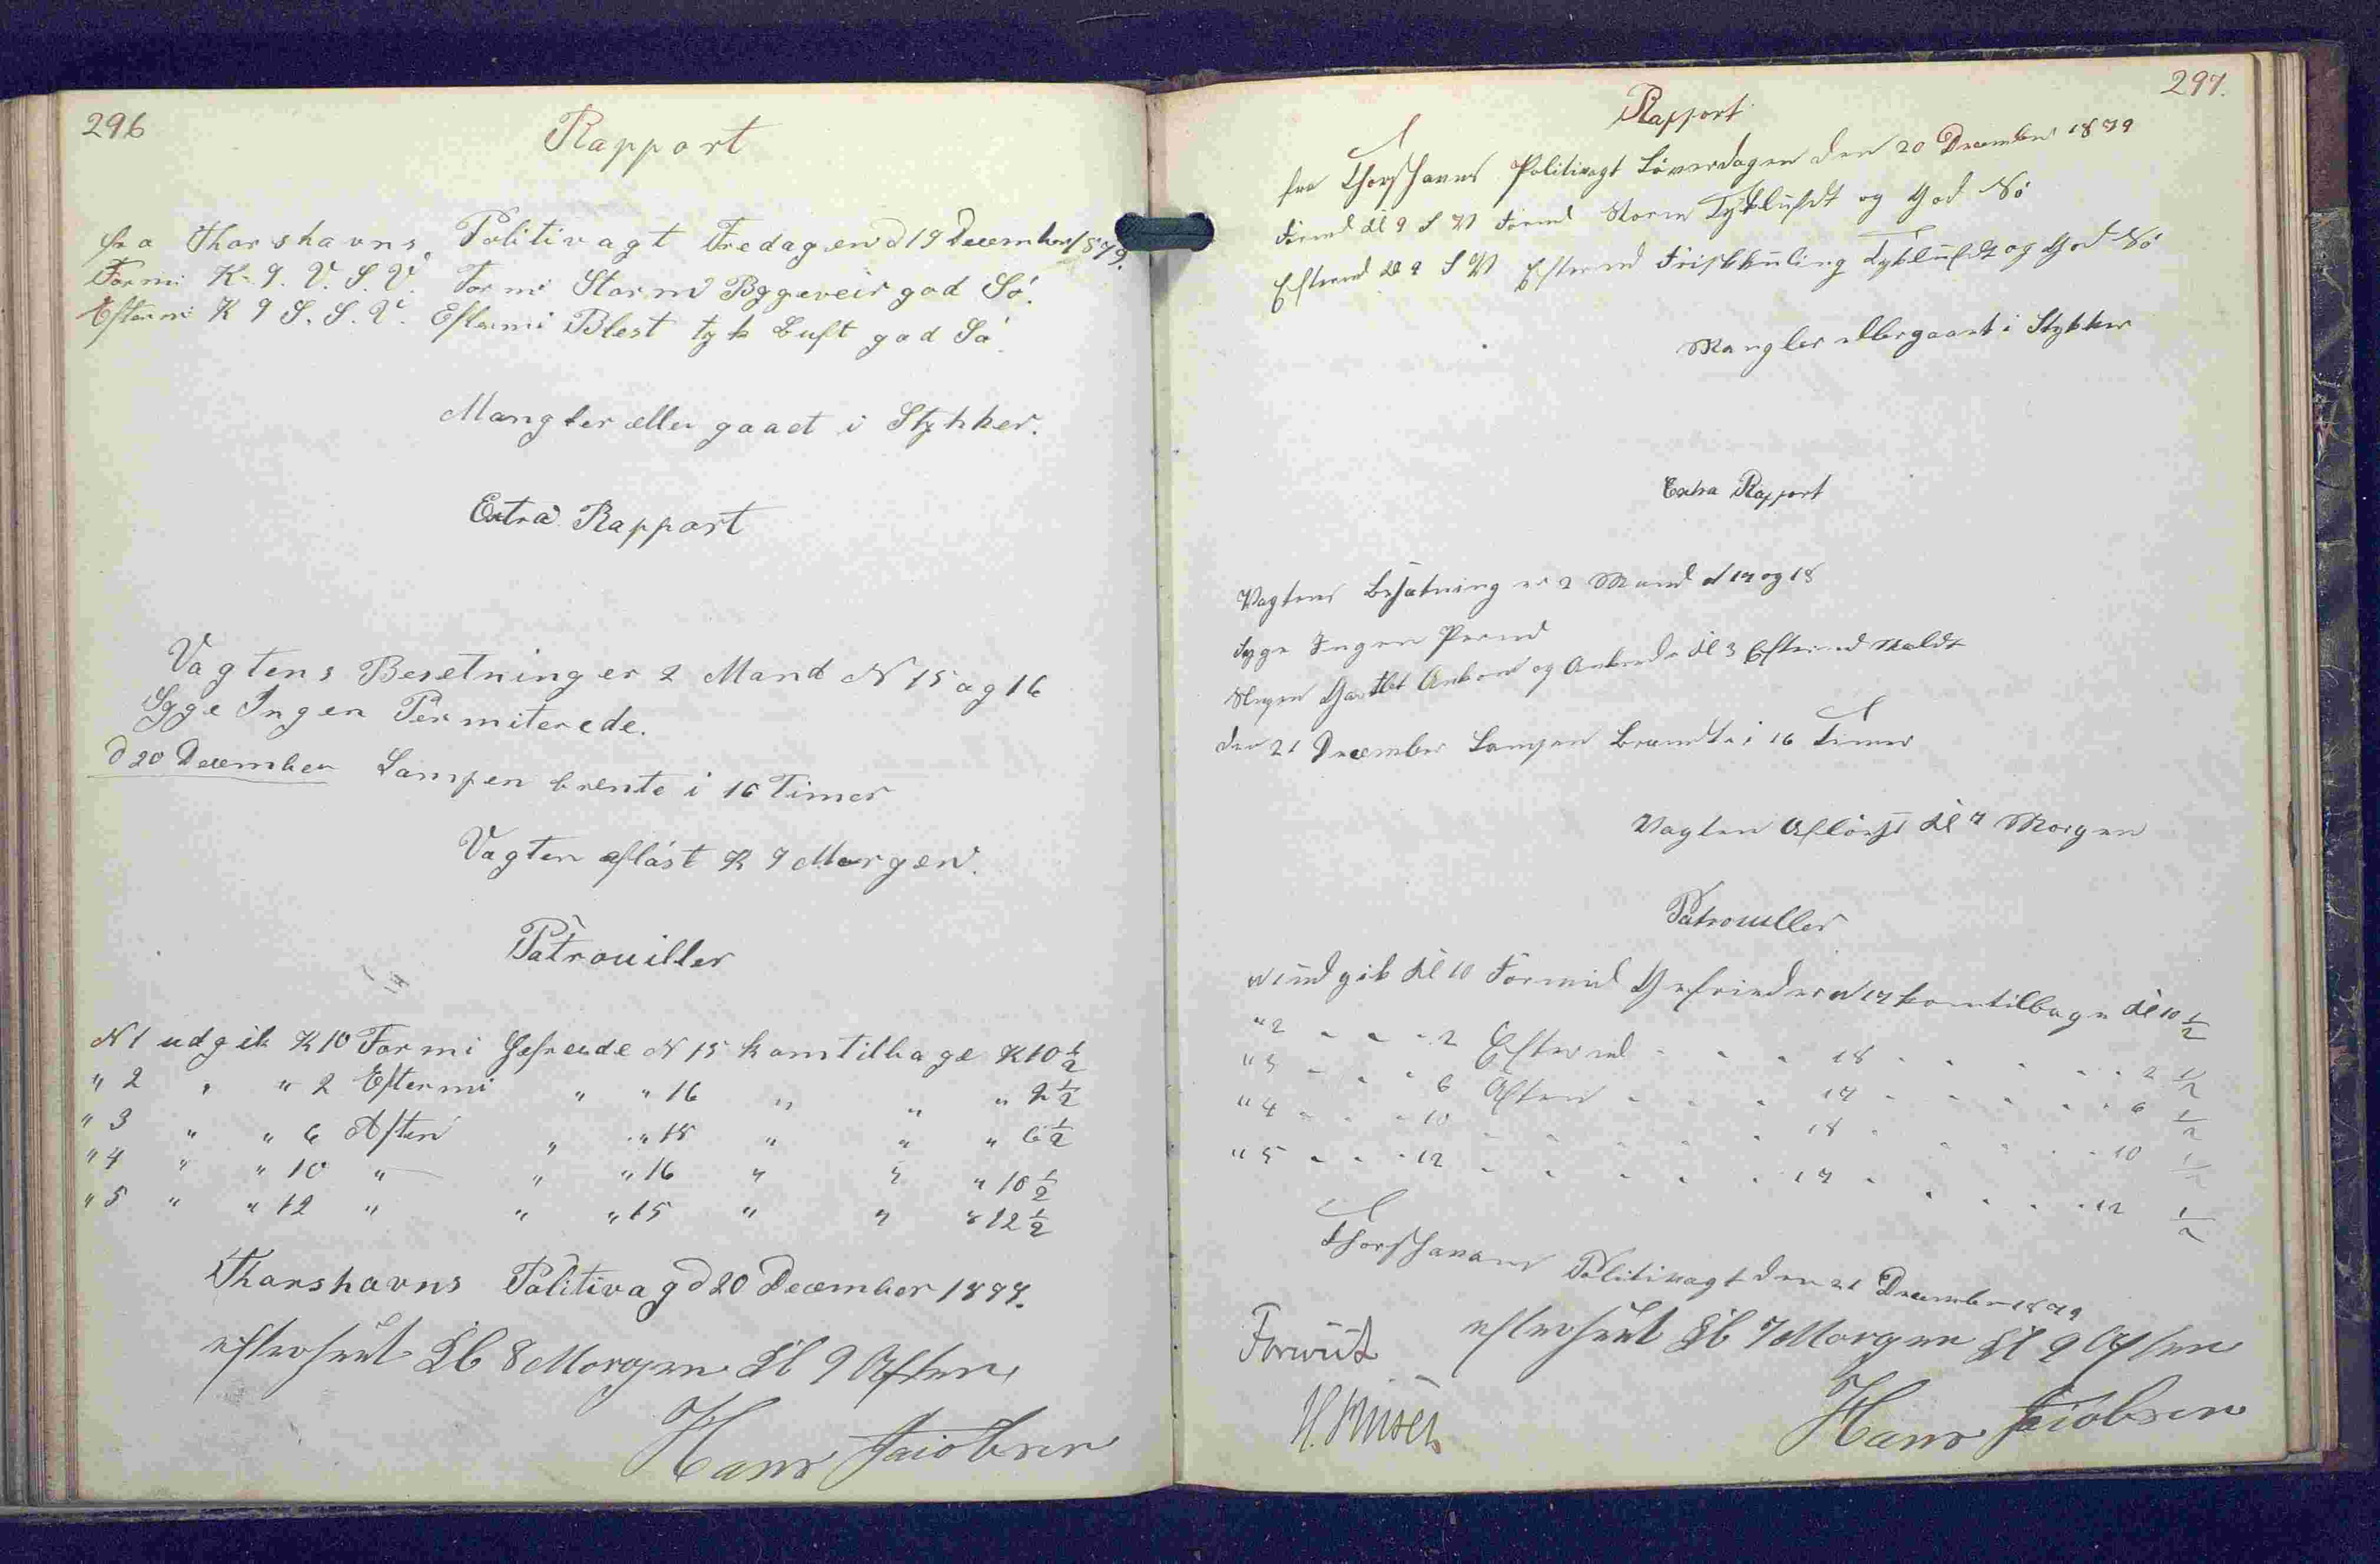 296
Rapport
fra Thorshavns Politivagt Fredagen d 19 December 1879.
Formi K. 9. V. S. V. Formi Storm Byggeveir god Sö.
Efterm K 9 S. S. V. Eftermi Blest tyk Luft god Sö.
Mangler eller gaaet i Stykker.
Extra Rapport
Vagtens Besetning er 2 Mand N 15 og 16
Syge Ingen Permiterede.
d 20 December Lampen brente i 16 Timer
Vagten aflöst K 9 Morgen.
Patrouiller
N 1 udgik K 10 Formi Gefreide N 15 kom tilbage K 10 1/2
" 2 " " 2 Eftermi " " 16 " " " 2 1/2
" 3 " " 6 Aften " " 15 " " " 6 1/2
" 4 " " 10 " " " 16 " " " 10 1/2
" 5 " " 12 " " " 15 " " " 12 1/2
Thorshavns Politivag d 20 December 1879.
efterseet Kl 8 Morgen Kl 9 Aften
Hans Jaiobsen
297.
Rapport
fra Thorshavns Politivagt Löverdagen den 20 December 1879
Formd Kl 9 S V Formd Storm Tykluft og God Sö
Eftermd Kl 9 S V Eftermd Friskkuling Tykluft og God Sö
Mangler eller gaaet i Stykker
Extra Rapport
Vagtens Besætning er 2 Mand N 17 og 18
Syge Ingen Permd
Kl 3 Eftermd
den 21 December Lampen Brændte i 16 Timer
Vagten Aflöst Kl 9 Morgen
Patrouiller
N 1 ud gik Kl 10 Formid Gefreider N 17 kom tilbage Kl 10 1/2
" 2 " " " 2 Eftermd " " " 18 " " " " " 2 1/2
" 3 " " " 6 Aften " " " 17 " " " " " 6 1/2
" 4 " " " 10 " " " " " 18 " " " " " 10 1/2
" 5 " " " 12 " " " " " 17 " " " " " 12 1/2
Thorshavns Politivagt den 21 December 1879
efterseet Kl 7 Morgen Kl 9 Aften
Hans Jaiobsen